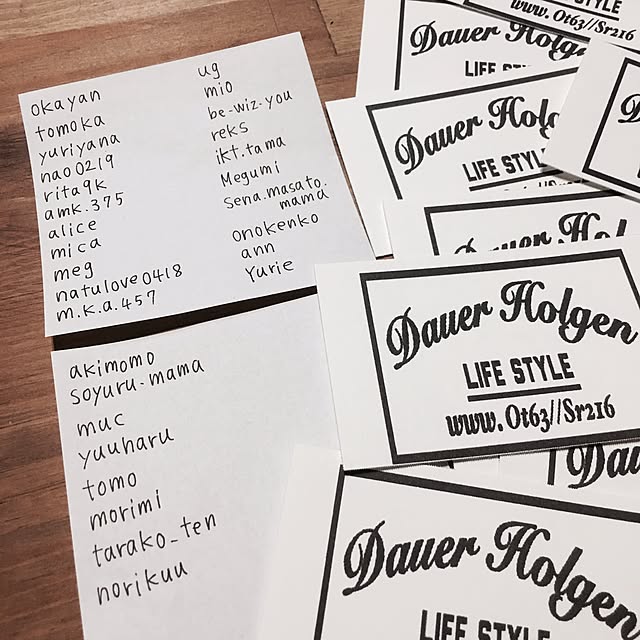 okayan
tomoka
yuriyana
nao0219
rita9k
amk.375
alice
mica
meg
natulove0418
m.k.a.457
ug
mio
be-wiz-you
reks
ikt.tama
Megumi
sena.masato.
mama
onokenko
ann
Yurie
akimomo
soyuru-mama
muc
yuuharu
tomo
morimi
tarako-ten
norikuu
www.Ot63//Sr216
Dauer Holgen
LIFE STYLE
Dauer Holg
LIFE STYLE
Dauer Holgen
LIFE STYLE
www.Ot63//Sr216
Dau
Dauer Holgen
LIFE STYLE